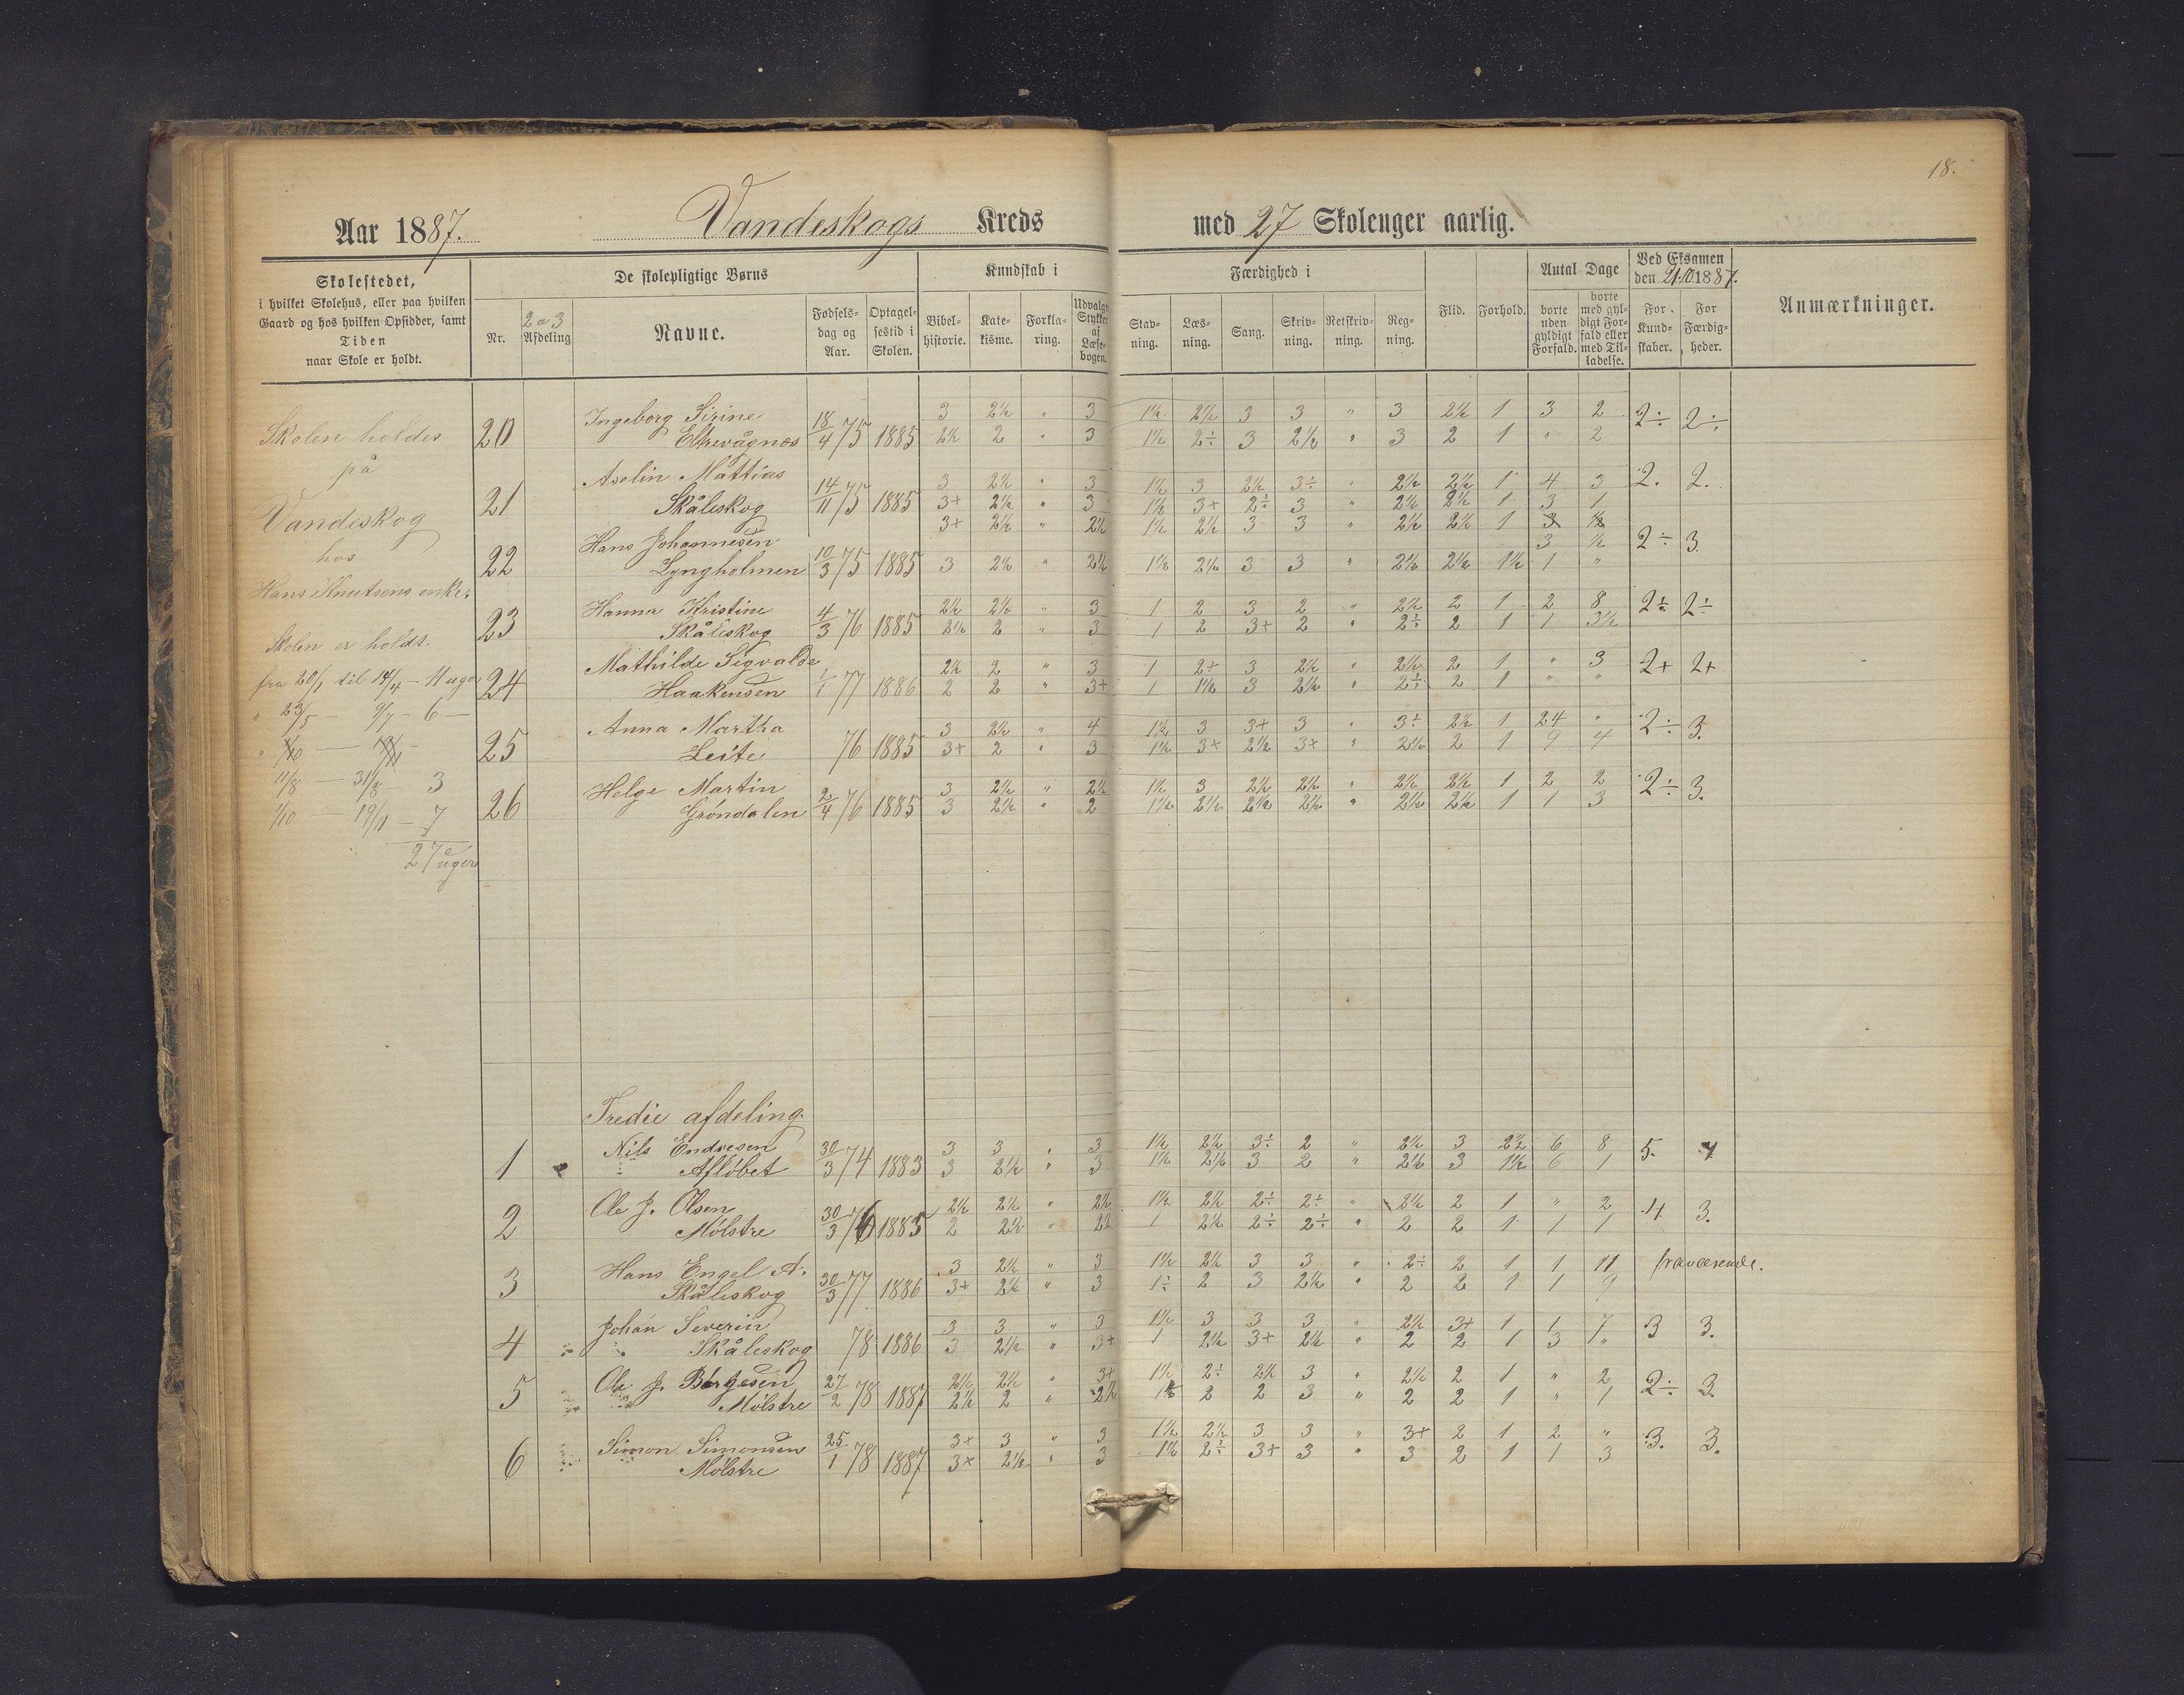 18.
Aar 1887. Vandeskogs Kreds med 27 Skoleuger aarlig.
Skolestedet,
i hvilket Skolehus, eller paa hvilken
Gaard og hos hvilken Opsidder, samt
Tiden
naar Skole er holdt.
De skolepligtige Børns
Nr.
2 a 3
Afdeling
Navne.
Fødsels-
dag og
Aar.
Optagel-
sestid i
Skolen.
Kundskab i
Bibel-
historie.
Kate-
kisme.
Forkla-
ring.
Udvalgte
Stykker
af
Læse-
bogen.
Færdighed i
Stav-
ning.
Læs-
ning.
Sang.
Skriv-
ning.
Retskriv-
ning.
Reg-
ning.
Flid.
Forhold.
Antal Dage
borte
uden
gyldigt
Forfald.
borte
med gyl-
digt For-
fald eller
med Til-
ladelse.
Ved Eksamen
den 21/10 1887.
For
Kund-
skaber.
For
Færdig-
heder.
Anmærkninger.
Skolen holdes
på
Vandeskog
hos
Hans Knutsens enke.
Skolen er holdt.
fra 20/1 til 14/4 – 11 uger
" 23/5 — 9/7 – 6 —
11/8 — 31/8 3
1/10 — 19/11 – 7
27 uger
20 Ingeborg Sirine 18/4 75 1885 3 2½ " 3 1½ 2½ 3 3 " 3 2½ 1 3 2 2÷ 2÷
Eltrevågnæs 2½ 2 " 3 1½ 2÷ 3 2½ " 3 2 1 " 2
21 Aselin Mattias 14/11 75 1885 3 2½ " 3 1½ 3 2½ 3÷ " 2½ 2½ 1 4 3 2. 2.
Skåleskog 3+ 2½ " 3 1½ 3+ 2÷ 3 " 2½ 2½ 1 3 1
22 Hans Johannesen 10/3 75 1885 3+ 2½ " 2½ 1½ 2½ 3 3 " 2½ 2½ 1 3 ½ 2÷ 3.
Lyngholmen 3 2½ " 2½ 1½ 2½ 3 3 " 2½ 2½ 1½ 1 "
23 Hanna Kristine 4/3 76 1885 2½ 2½ " 3 1 2 3 2 " 2½ 2 1 2 8 2÷ 2÷
Skåleskog 2½ 2 " 3 1 2 3+ 2 " 2÷ 2 1 1 3½
24 Mathilde Sigvalde 1/1 77 1886 2½ 2 " 3 1 2+ 3 2½ " 2½ 2 1 " 3 2+ 2+
Haakensen 2 2 " 3+ 1 1½ 3 2½ " 2÷ 2 1 " "
25 Anna Martha 76 1885 3 2½ " 4 1½ 3 3+ 3 " 3÷ 2½ 1 24 " 2÷ 3.
Leite 3+ 2 " 3 1½ 3+ 2½ 3+ " 2½ 2 1 9 4
26 Helge Martin 2/4 76 1885 3 2½ " 2½ 1½ 3 2½ 2½ " 2½ 2½ 1 2 2 2÷ 3.
Gröndalen 3 2½ " 2 1½ 2½ 2½ 2½ " 2½ 2½ 1 1 3
Tredie afdeling.
1 Nils Endresen 30/3 74 1883 3 3 " 3 1½ 2½ 3÷ 2 " 2½ 3 2½ 6 8 5. 4
Aflöbet 3 2½ " 3 1½ 2½ 3 2 " 2½ 3 1½ 6 1
2 Ole J. Olsen 30/3 76 1885 2½ 2½ " 2½ 1½ 2½ 2÷ 2÷ " 2½ 2 1 " 2 4 3.
Mölstre 2 2½ " 2½ 1 2½ 2÷ 2÷ " 2 2 1 1 1
3 Hans Engel A. 30/3 77 1886 3 2½ " 3 1½ 2½ 3 3 " 2÷ 2 1 1 11 fraværende.
Skåleskog 3+ 2½ " 3 1÷ 2 3 2½ " 2 2 1 1 9
4 Johan Severin 78 1886 3 3 " 3 1½ 3 3 3 " 2½ 3+ 1 1 7 3 3.
Skåleskog 3 2½ " 3+ 1 2½ 3+ 2½ " 2 2 1 3 "
5 Ole J. Börgesen 27/2 78 1887 2½ 2½ " 3+ 1½ 2÷ 2½ 3 " 2½ 2 1 " 2 2÷ 3.
Mölstre 2½ 2 " 2½ 1½ 2 2 3 " 2 2 1 " 1
6 Simon Simonsen 25/1 78 1887 3+ 3 " 3 1½ 2½ 3 3 " 3+ 2 1 2 " 3. 3.
Mölstre 3+ 2½ " 3 1½ 2÷ 3+ 3 " 3 2 1 1 3